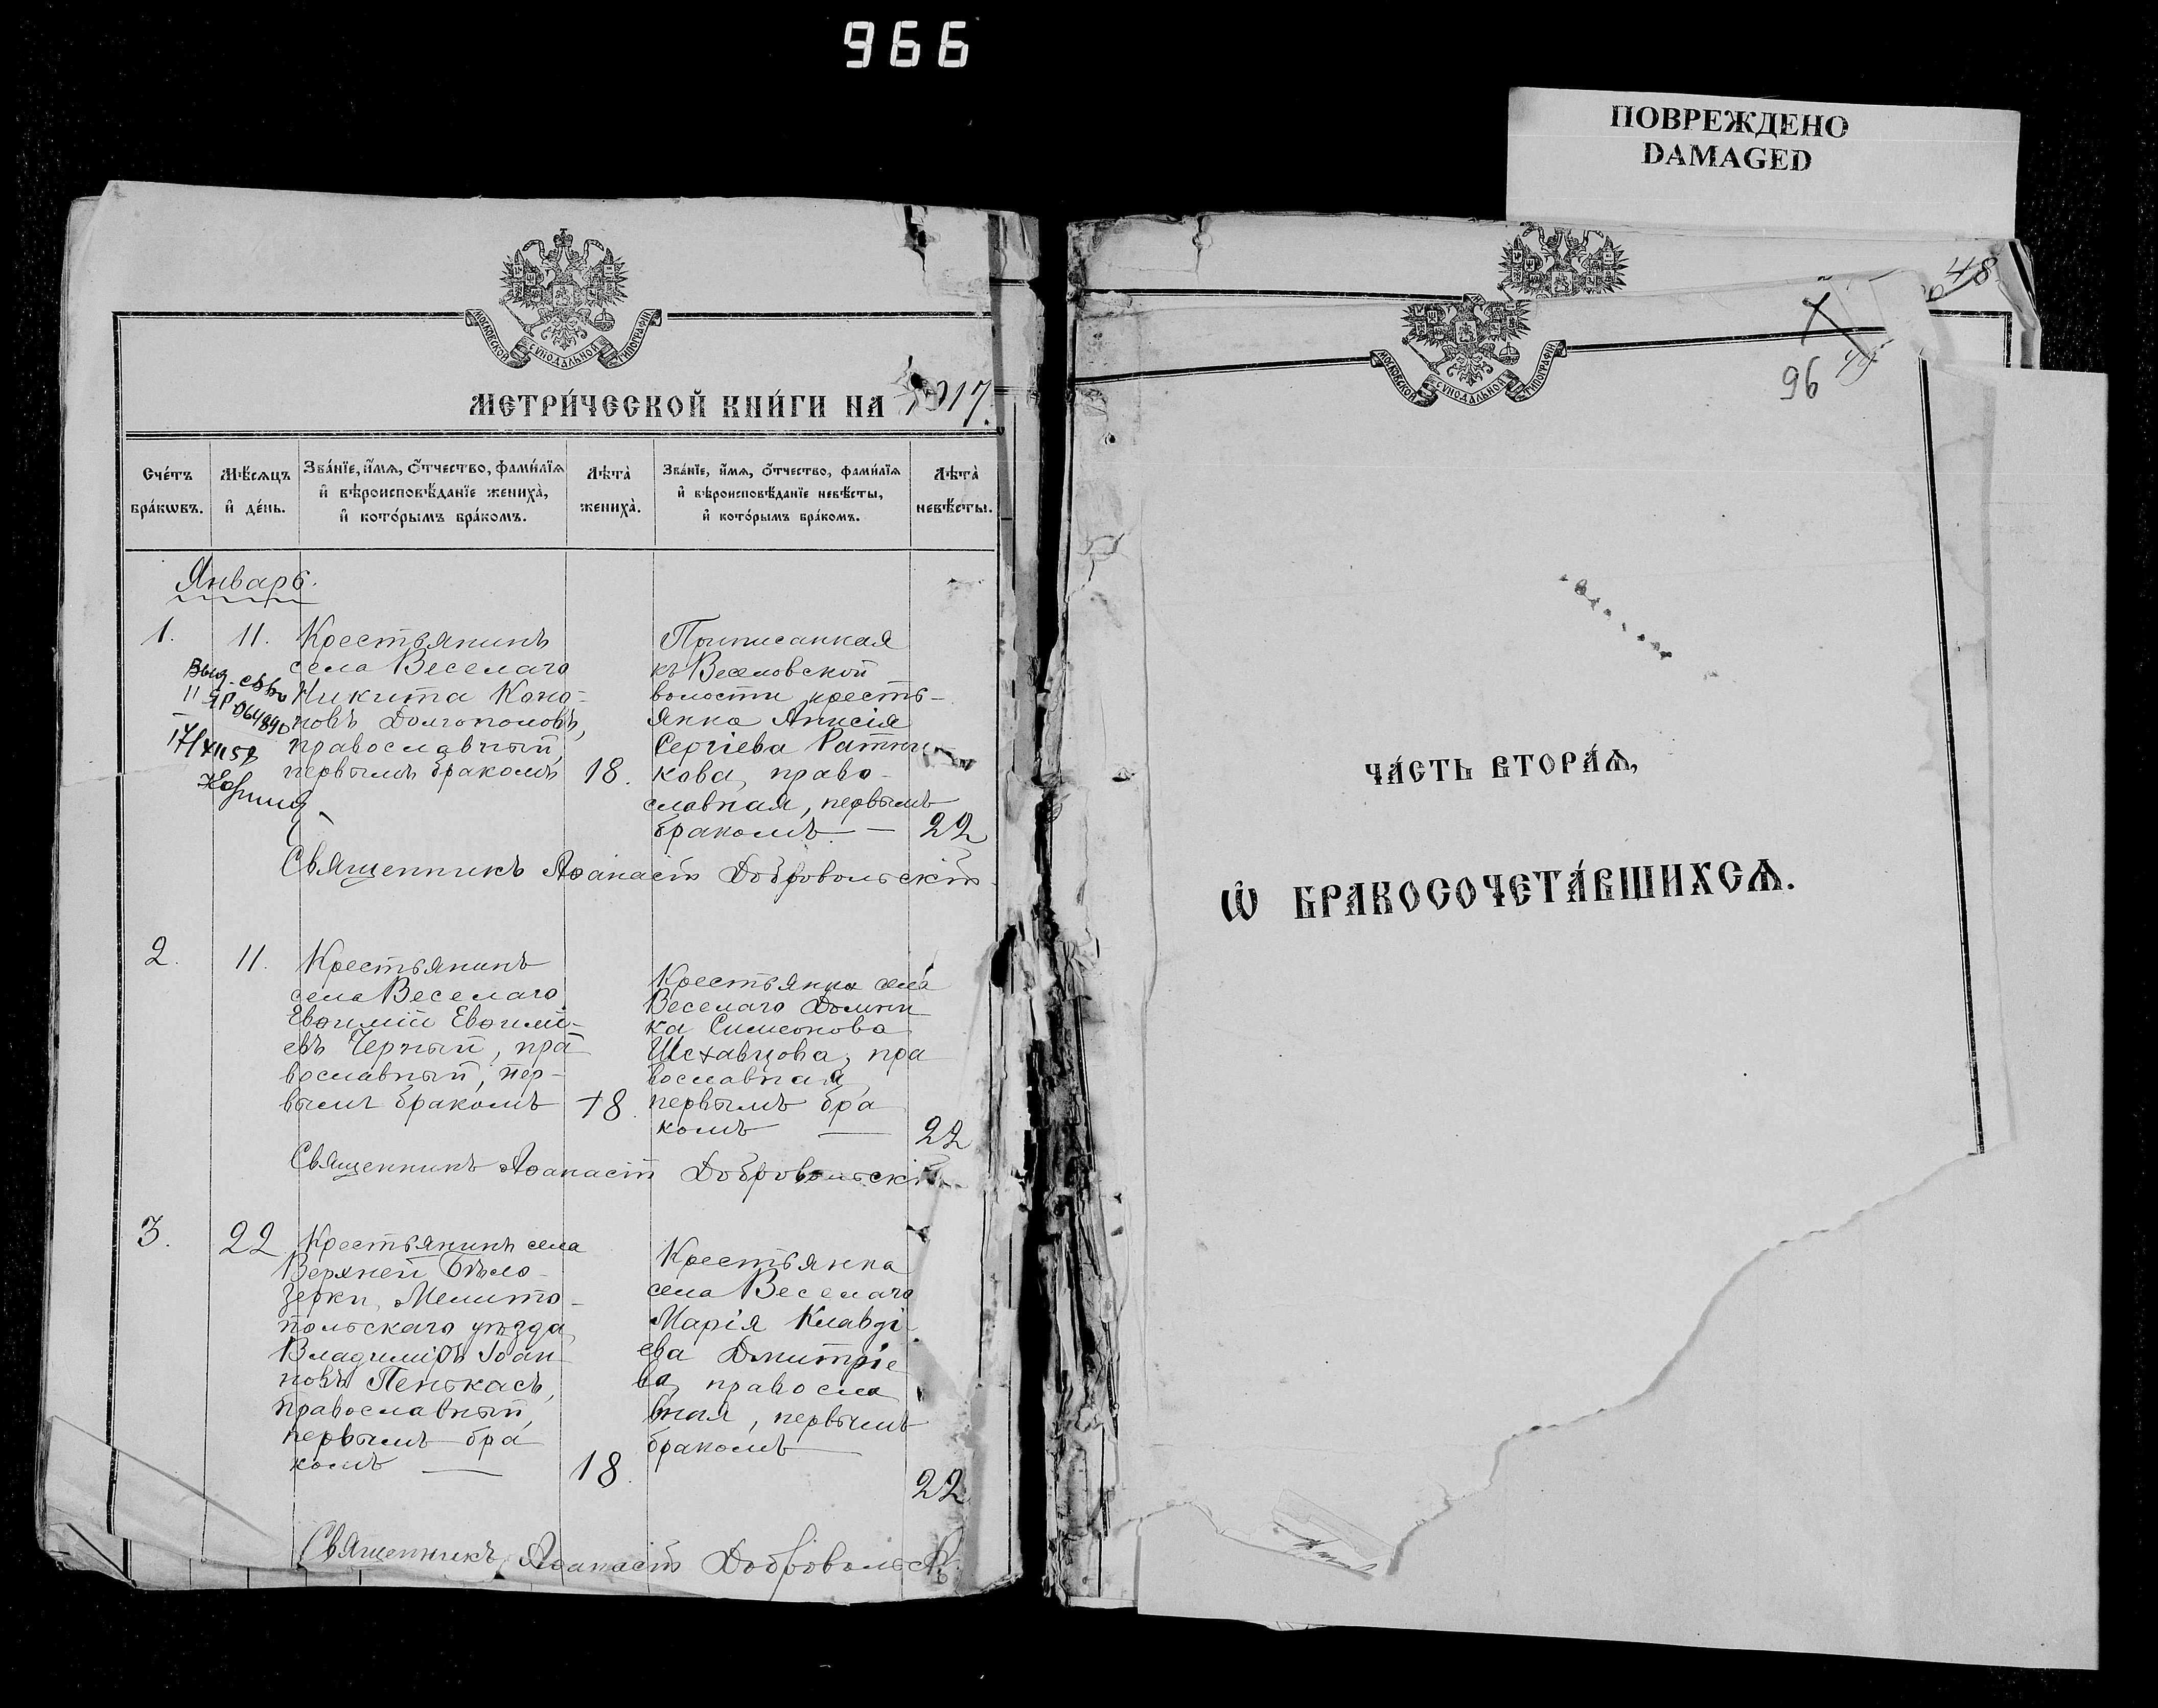 966
ПОВРЕЖДЕНО
DAMAGED
МОСКОВСКОЙ СѴНОДАЛЬНОЙ ТИПОГРАФІИ
МЕТРИ́ЧЕСКОЙ КНИ́ГИ НА 1917.
Сче́тъ бра́кѡвъ.
Мѣ́сѧцъ и҆ де́нь.
Зва́нїе, и҆́мѧ, ѻ҆́тчество, фами́лїѧ и҆ вѣроисповѣ́данїе жениха̀, и҆ кото́рымъ бра́комъ.
Лѣта̀ жениха̀.
Зва́нїе, и҆́мѧ, ѻ҆́тчество, фами́лїѧ и҆ вѣроисповѣ́данїе невѣ́сты, и҆ кото́рымъ бра́комъ.
Лѣта̀ невѣ́сты.
Январь.
1.
11.
Крестьянинъ
села Веселаго
Никита Коно-
новъ Долгополовъ,
православный,
первымъ бракомъ
18.
Приписанная
къ Веселовской
волости кресть-
янка Анисія
Сергіева Ратни
кова, право-
славная, первымъ
бракомъ. —
22
Выд. св-во
II ЯР 064890
17/XII 52
Священникъ Аѳанасій Добровольскій
2.
11.
Крестьянинъ
села Веселаго
Евѳимій Евѳимі-
евъ Черный, пра
вославный, пер-
вымъ бракомъ
18.
Крестьянка села
Веселаго Домни
ка Симеонова
Шставцова, пра
вославная
первымъ бра
комъ —
22
Священникъ Аѳанасій Добровольскій
3.
22
Крестьянинъ села
Верхней Бѣло-
зерки, Мелито-
польскаго уѣзда
Владиміръ Іоан
новъ Пенькасъ,
православный,
первымъ бра
комъ —
18.
Крестьянка
села Веселаго
Марія Клавді
ева Дмитріе
ва, правосла
вная, первымъ
бракомъ —
22
Священникъ Аѳанасій Добровольскі
48
96
49
МОСКОВСКОЙ СѴНОДАЛЬНОЙ ТИПОГРАФІИ
ЧА́СТЬ ВТОРА́Ѧ,
Ѡ҆ БРАКОСОЧЕТА́ВШИХСѦ.